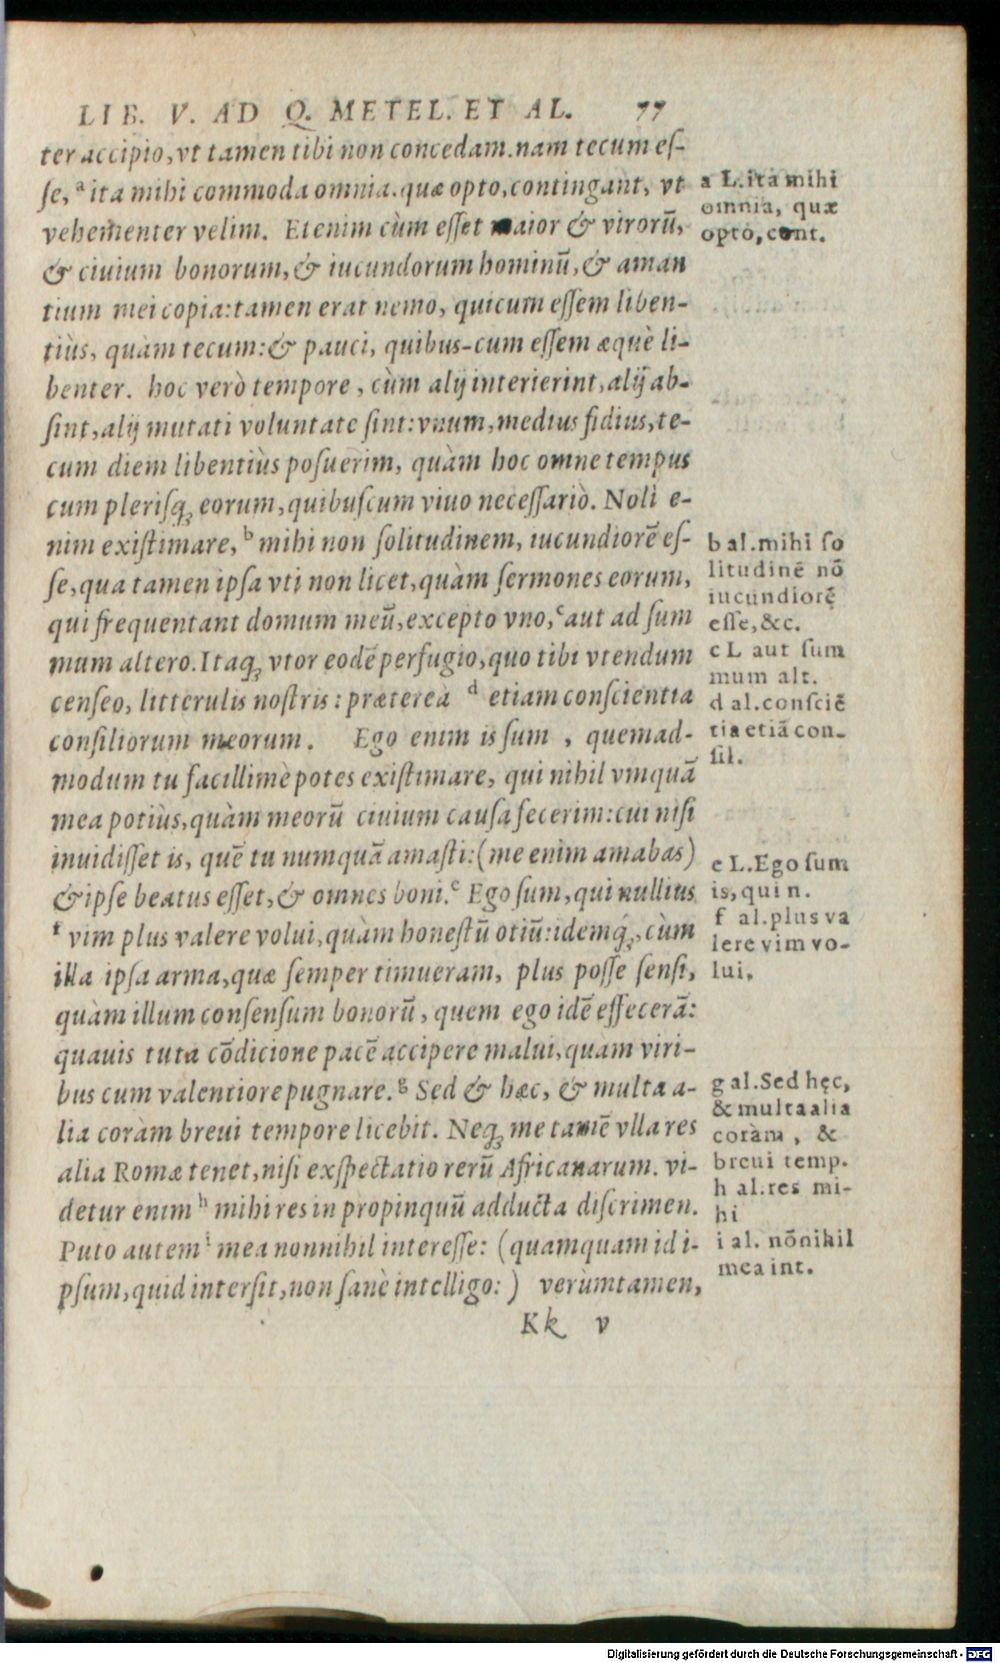 LIB. V. AD Q. METEL. ET AL. 77
ter accipio, vt tamen tibi non concedam. nam tecum eſ-
ſe, ᵃ ita mihi commoda omnia. quæ opto, contingant, vt
vehementer velim. Etenim cùm eſſet maior & virorū,
& ciuium bonorum, & iucundorum hominū, & aman
tium mei copia: tamen erat nemo, quicum eſſem liben-
tiùs, quàm tecum: & pauci, quibus-cum eſſem æquè li-
benter. hoc verò tempore, cùm alij interierint, alij ab-
ſint, alij mutati voluntate ſint: vnum, medius fidius, te-
cum diem libentiùs poſuerim, quàm hoc omne tempus
cum pleriſq; eorum, quibuſcum viuo neceſſariò. Noli e-
nim exiſtimare, ᵇ mihi non ſolitudinem, iucundiorē eſ-
ſe, qua tamen ipſa vti non licet, quàm ſermones eorum,
qui frequentant domum meū, excepto vno, ᶜ aut ad ſum
mum altero. Itaq; vtor eodē perfugio, quo tibi vtendum
cenſeo, litterulis noſtris: præterea ᵈ etiam conſcientia
conſiliorum meorum. Ego enim is ſum, quemad-
modum tu facillimè potes exiſtimare, qui nihil vmquā
mea potiùs, quàm meorū ciuium cauſa fecerim: cui niſi
inuidiſſet is, quē tu numquā amaſti: (me enim amabas)
& ipſe beatus eſſet, & omnes boni. ᵉ Ego ſum, qui nullius
ᶠ vim plus valere volui, quàm honeſtū otiū: idemq́;, cùm
illa ipſa arma, quæ ſemper timueram, plus poſſe ſenſi,
quàm illum conſenſum bonorū, quem ego idē effecerā:
quauis tuta cōdicione pacē accipere malui, quam viri-
bus cum valentiore pugnare. ᵍ Sed & hæc, & multa a-
lia coràm breui tempore licebit. Neq; me tamē vlla res
alia Romæ tenet, niſi exſpectatio rerū Africanarum. vi-
detur enim ʰ mihi res in propinquū adducta diſcrimen.
Puto autem ⁱ mea nonnihil intereſſe: (quamquam id i-
pſum, quid interſit, non ſanè intelligo:) verùmtamen,
Kk v
a L. ita mihi
omnia, quæ
opto, cont.
b al. mihi ſo
litudinē nō
iucundiorē
eſſe, &c.
c L aut ſum
mum alt.
d al. conſciē
tia etiā con-
ſil.
e L. Ego ſum
is, qui n.
f al. plus va
lere vim vo-
lui.
g al. Sed hęc,
& multa alia
coràm, &
breui temp.
h al. res mi-
hi
i al. nōnihil
mea int.
Digitalisierung gefördert durch die Deutsche Forschungsgemeinschaft - DFG